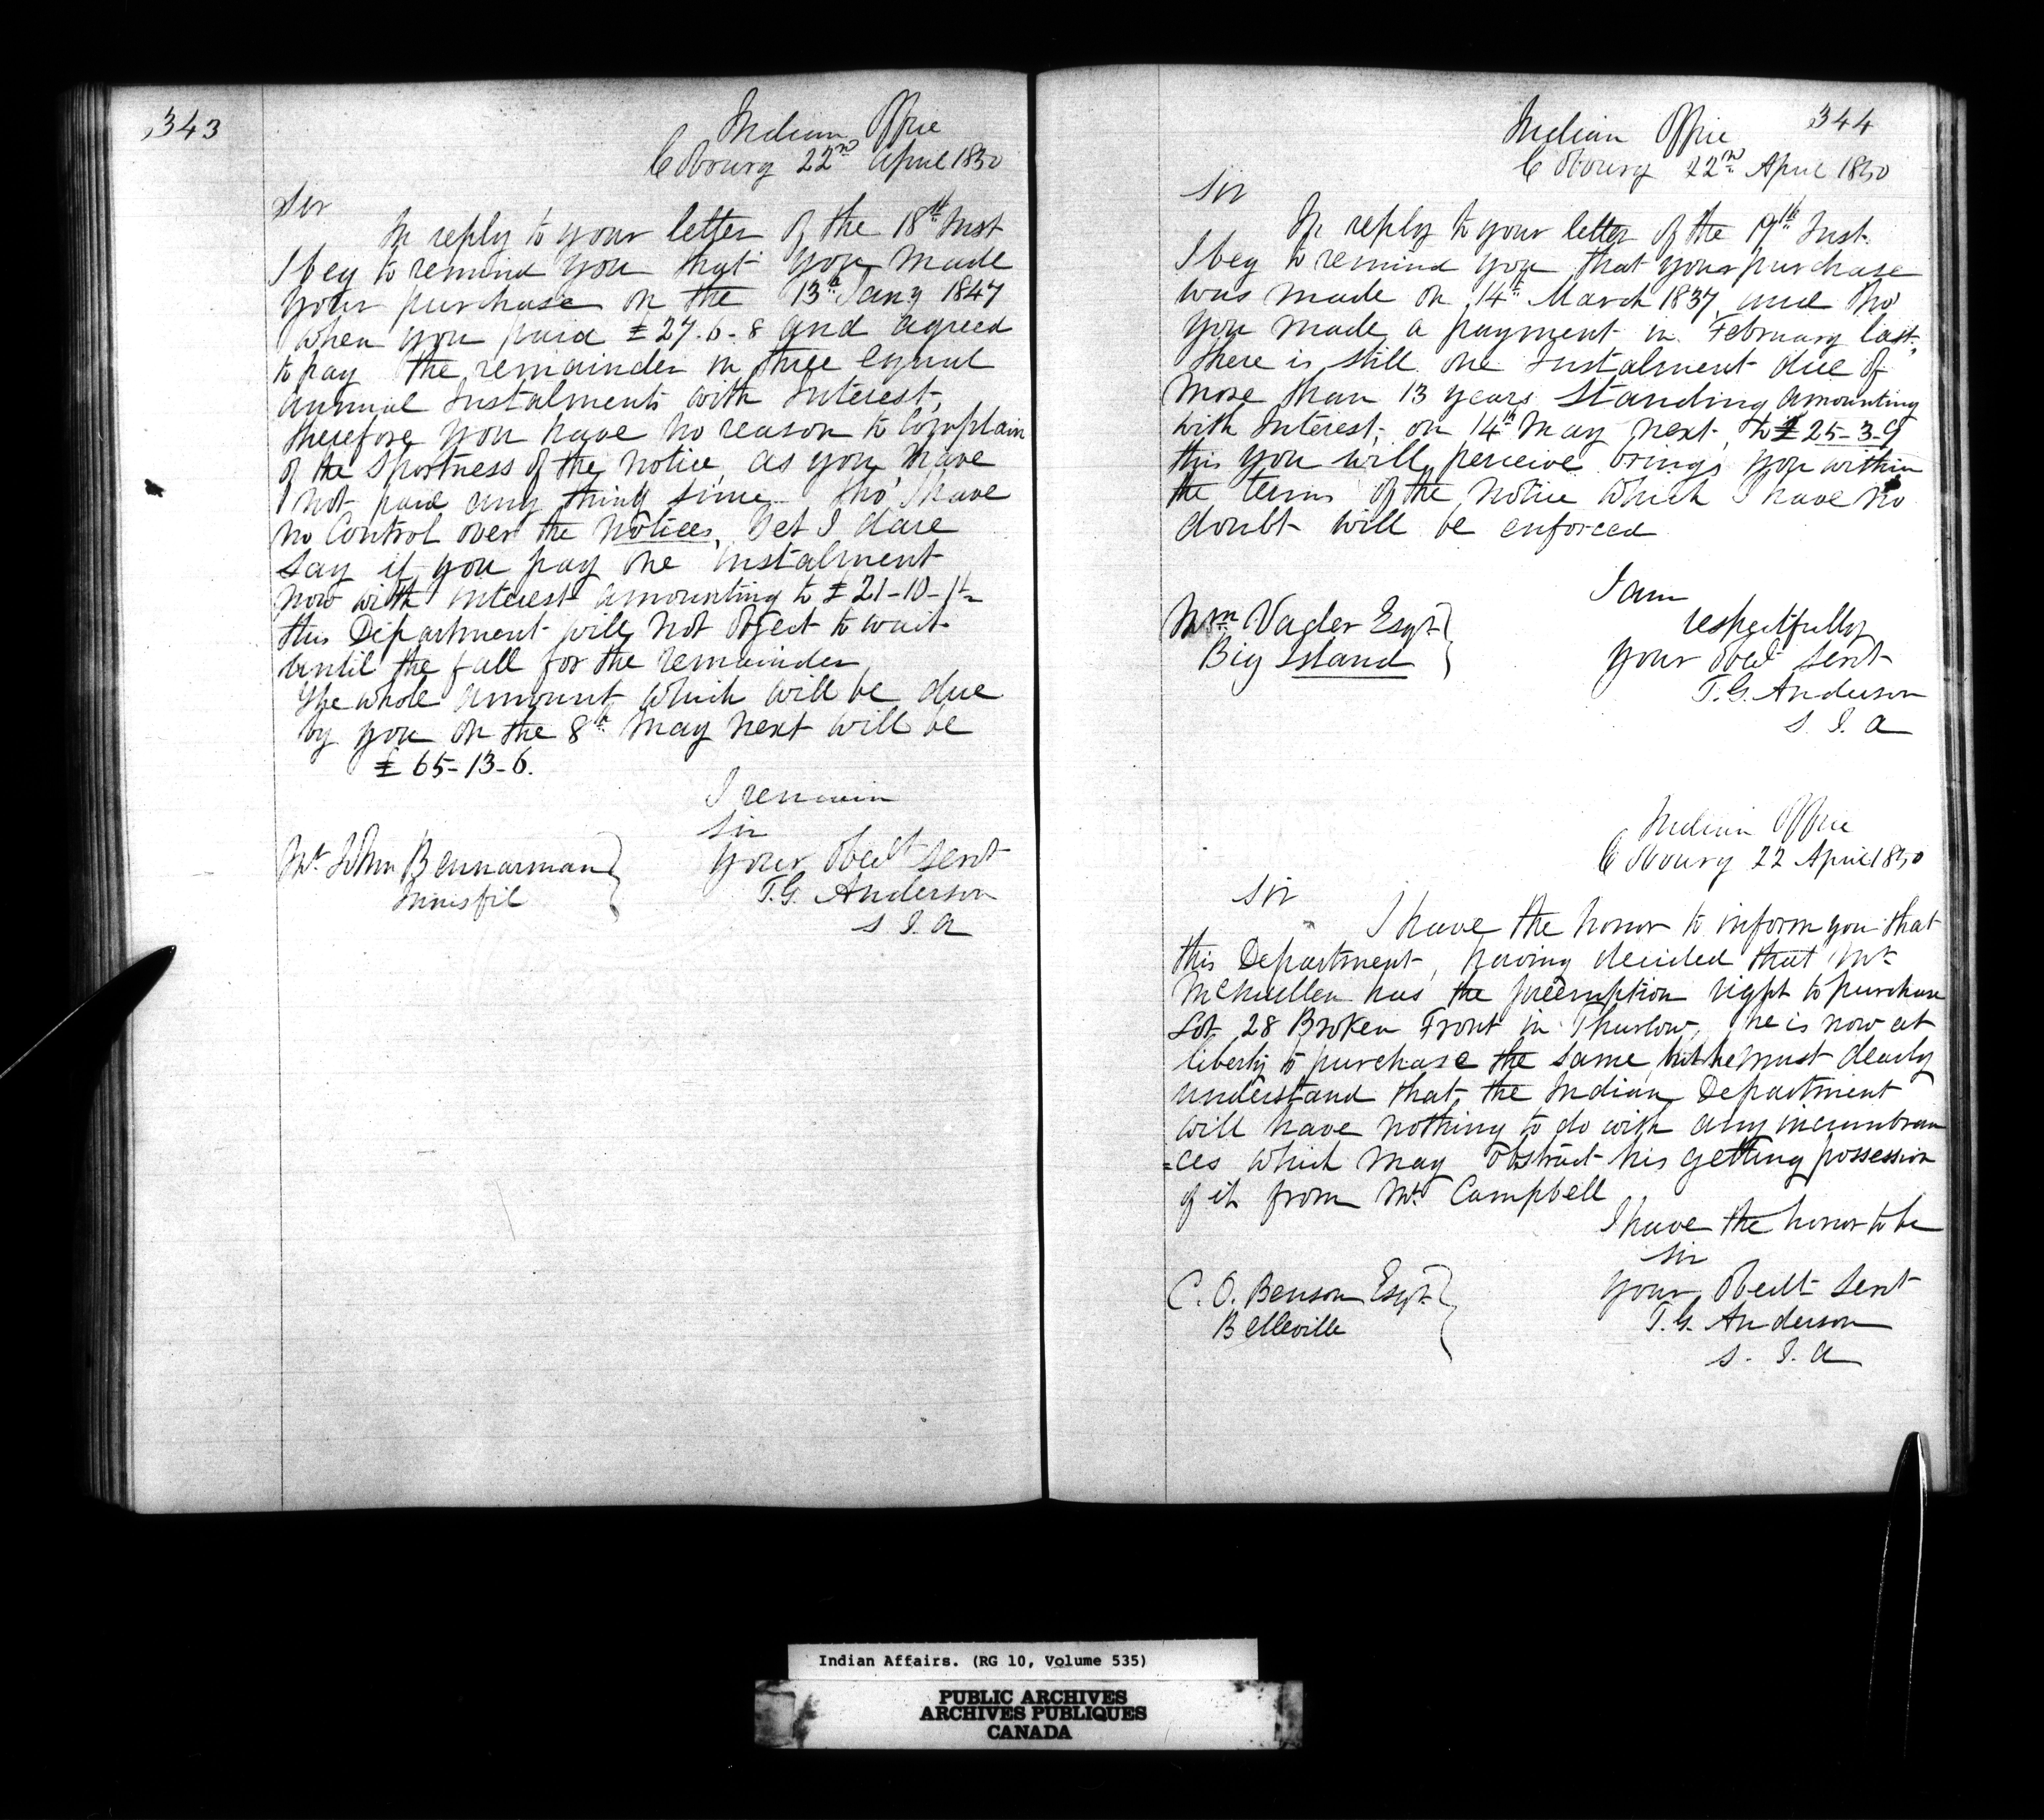 343
Indian Office
Cobourg 22nd April 1850
Sir
In reply to your letter of the 18th Inst
I beg to remind you that you made
your purchase on the 13th Jany 1847
when you paid £27.6.8 and agreed
to pay the remainder in three equal
annual Instalments with Interest,
therefore you have no reason to complain
of the shortness of the notice, as you have
not paid any thing since. Tho' I have
no Control over the Notices, Yet I dare
say if you pay one instalment
now with interest amounting to £21-10-1
this Department will not object to wait
until the fall for the remainder
The whole amount which will be due
by you on the 8th May next will be
£65-13-6.
I remain
Sir
Your Obedt Servt
T.G. Anderson
S. I. A
Mr. John Bennarman
Innisfil
344
Indian Office
Cobourg 22nd April 1850
Sir
In reply to your letter of the 19th Inst.
I beg to remind you that your purchase
was made on 14th March 1837, and tho'
you made a payment in February last,
there is still one Instalment due of
more than 13 years standing amounting
with Interest, on 14th May next, to £25-3-9
this you will perceive brings you within
the terms of the notice which I have no
doubt will be enforced
I am
respectfully
Your Obedt Servt
T.G. Anderson
S. I. A
Wm Vader Esqr
Big Island
Indian Office
Cobourg 22 April 1850
Sir
I have the honor to inform you that
this Department, having decided that Mr
McMullen has the preemption right to purchase
Lot 28 Broken Front in Thurlow, he is now at
liberty to purchase the same, but he must clearly
understand that the Indian Department
will have nothing to do with any incumbran
=ces which may obstruct his getting possession
of it from Mr Campbell
I have the honor to be
Sir
Your Obedt Servt
T.G. Anderson
S. I. A
C. O. Benson Esqr
Belleville
Indian Affairs. (RG 10, Volume 535)
PUBLIC ARCHIVES
ARCHIVES PUBLIQUES
CANADA